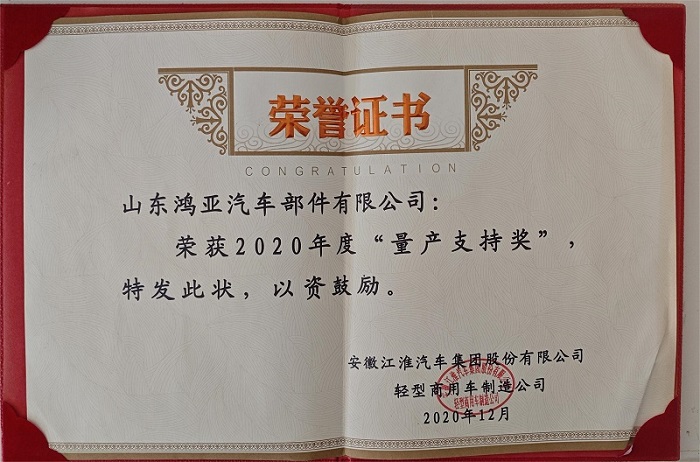 荣誉证书
CONGRATULATION
山东鸿亚汽车部件有限公司：
荣获2020年度“量产支持奖”，
特发此状，以资鼓励。
安徽江淮汽车集团股份有限公司
轻型商用车制造公司
2020年12月
轻型商用车制造公司